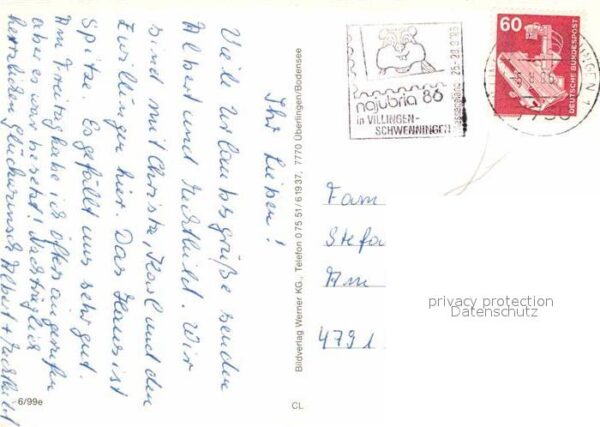 Ihr Lieben!
Viele Urlaubsgrüße senden
Albert und Mechthild. Wir
sind mit Christa, Karl und den
Zwillingen hier. Das Haus ist
Spitze. Es gefällt uns sehr gut.
Am Freitag habe ich öfter angerufen
aber es war besetzt! Nachträglich
herzlichen Glückwunsch Albert + Mechthild
6/99e
CL
Bildverlag Werner KG., Telefon 075 51/61937, 7770 Überlingen/Bodensee
najubria 86
in VILLINGEN-
SCHWENNINGEN
60
DEUTSCHE BUNDESPOST
Fam
Stefa
Am
4791
privacy protection
Datenschutz